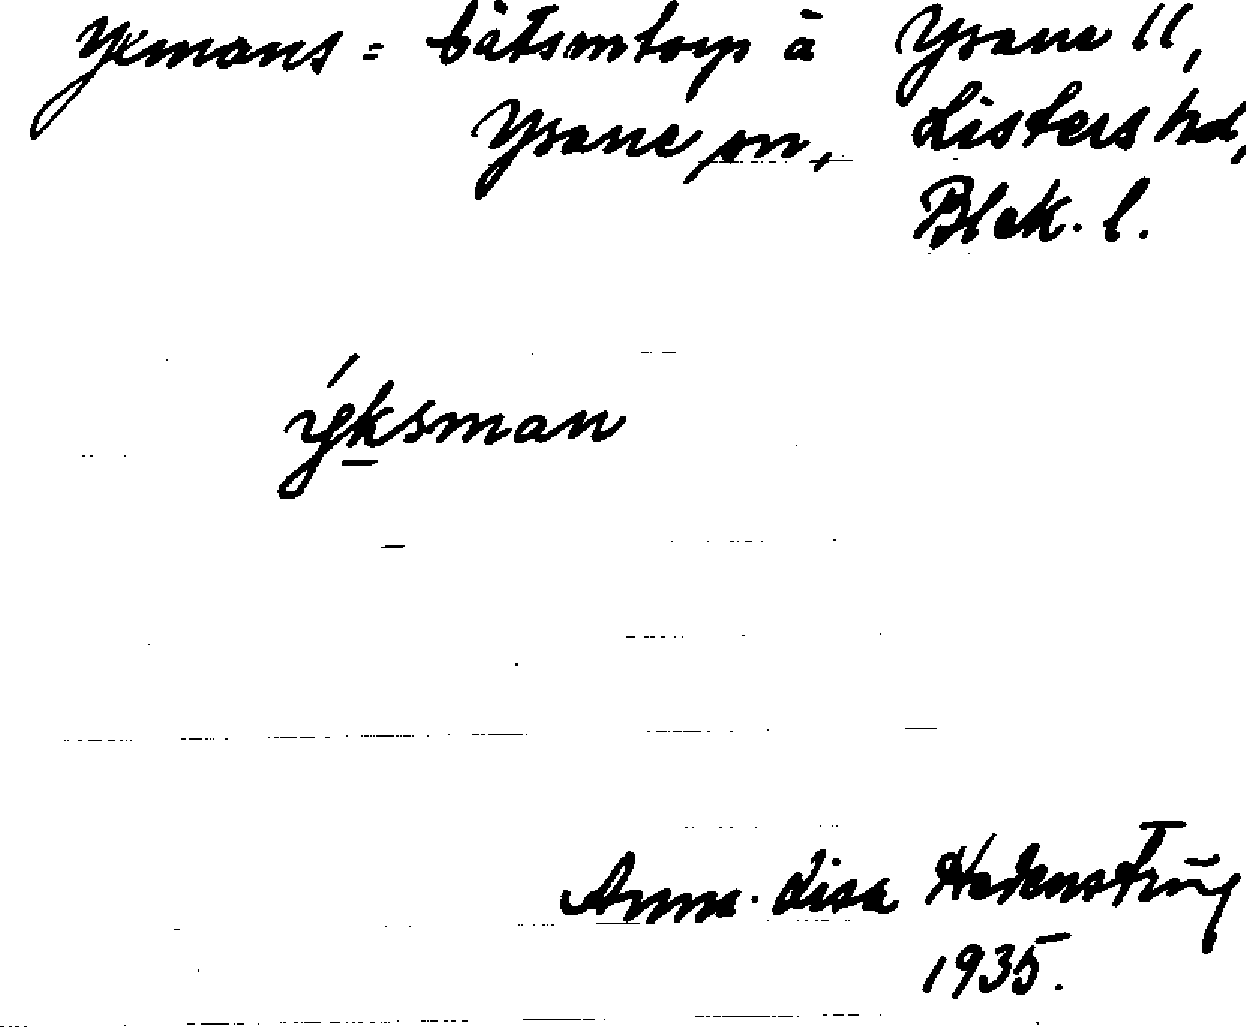 Yxmans = båtsmtorp å Ysane 11,
Ysane sn, Listers hd,
Blek. l.
ýksman
Anna-Lisa Hedenström
1935.